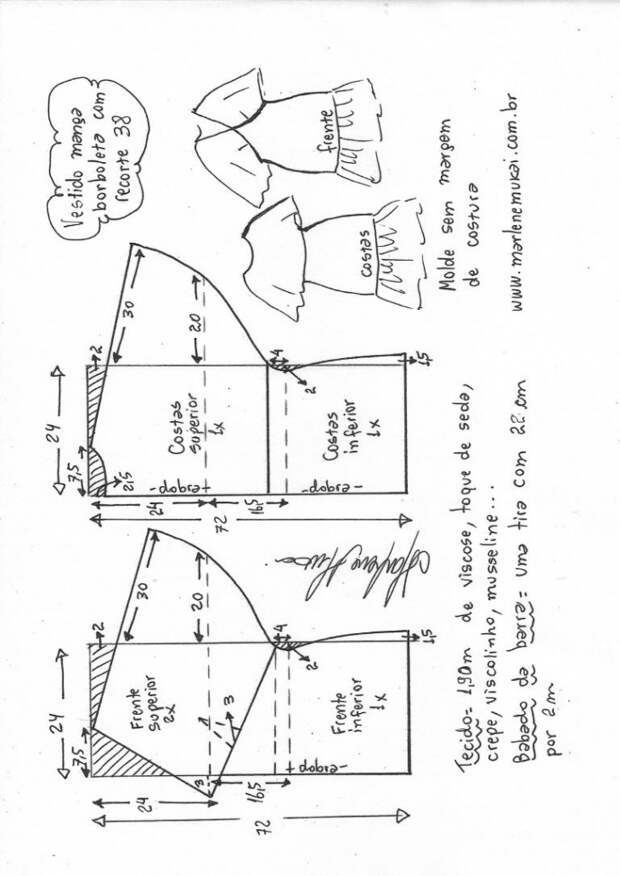 Vestido manga
borboleta com
recorte 38
frente
costas
Molde sem margem
de costura
www.marlenemukai.com.br
24
7,5
2
30
20
2,5
Costas
superior
1x
-dobra-
4
2
24
16,5
72
Costas
inferior
1x
-dobra-
1,5
24
7,5
2
30
20
Frente
superior
2x
3
3
4
2
24
16,5
72
Frente
inferior
1x
-dobra-
1,5
Tecido= 1,90m de viscose, toque de seda,
crepe, viscolinho, musseline...
Babado da barra= uma tira com 22 cm
por 2m